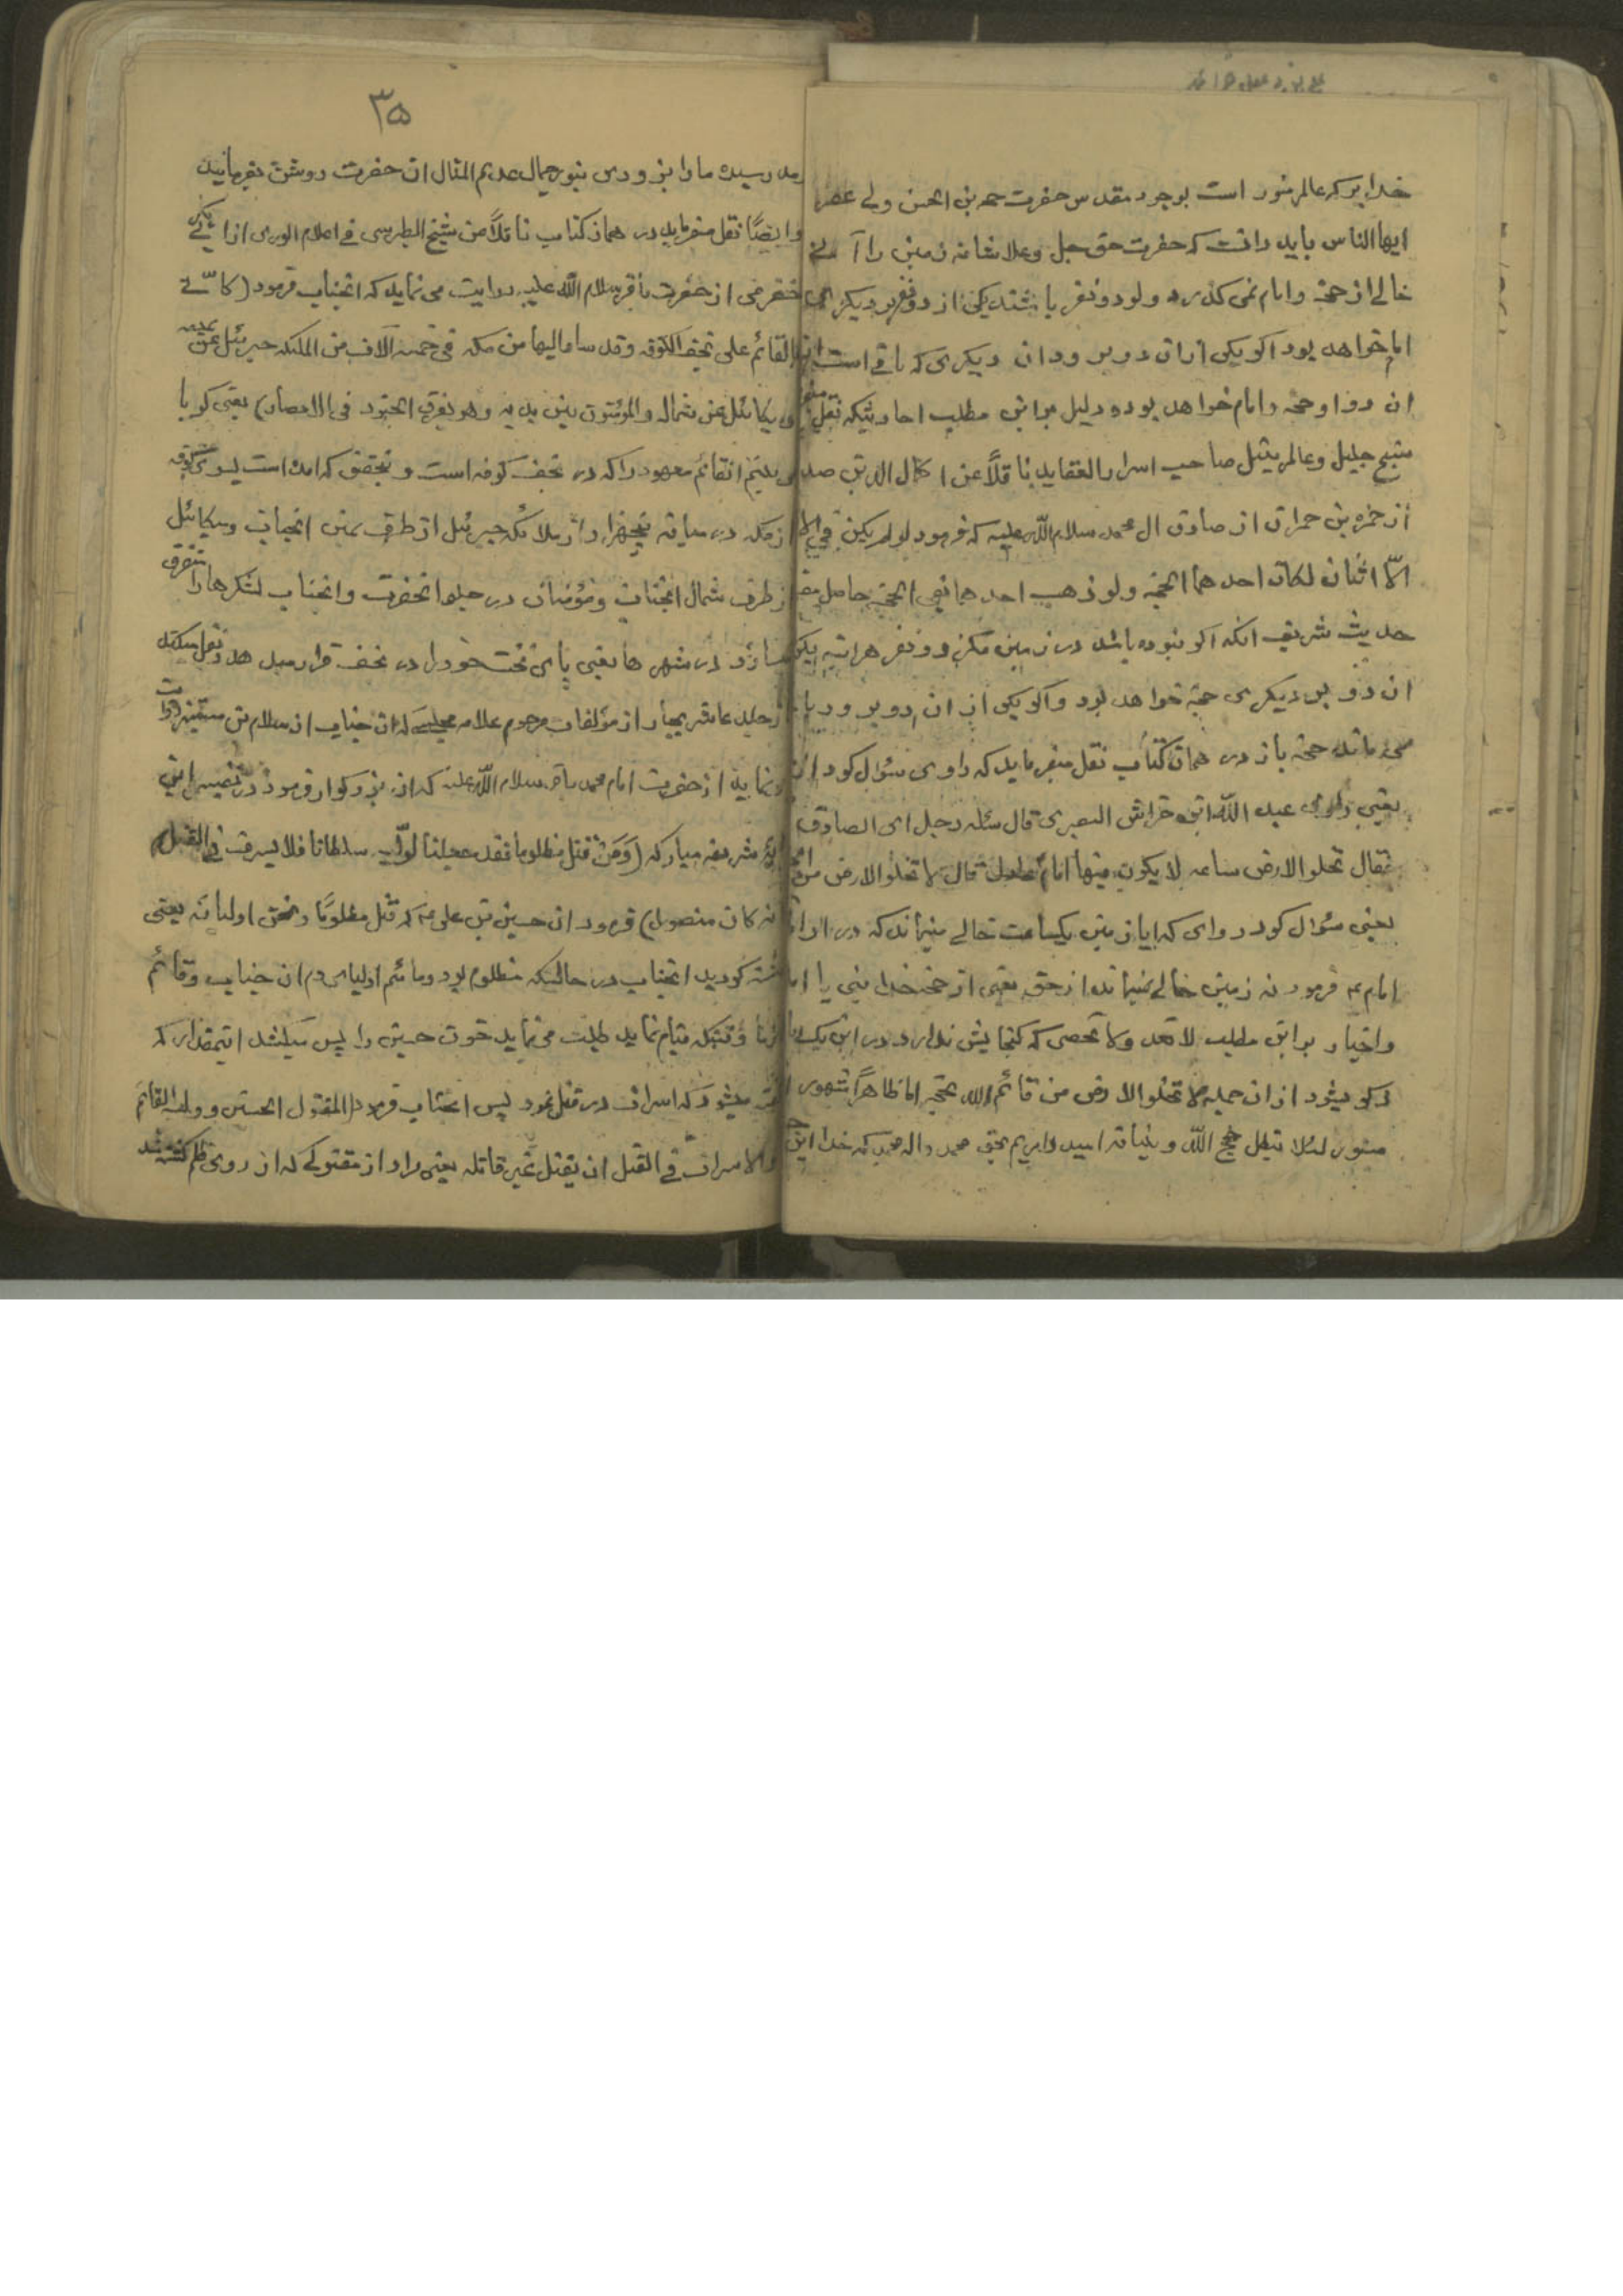 خدایرکه عالم منور است بوجود مقدس حضرت حجة بن الحسن ولی عصر
ایها الناس باید دانست که حضرت حق جل وعلا شانه زمین را آنی
خالی از حجة وامام نمی کذارد ولو دو نفر باشند یکی از دو نفر بر دیکری
امام خواهد بود اکر یکی از ان دو برود ان دیکری که باقی است
ان دو او حجة وامام خواهد بود ودلیل براین مطلب احادیثیکه نقل
متبع جلیل وعالم بیمثل صاحب اسرار العقاید ناقلاً عن اکمال الدین
از حمزه بن حمران از صادق ال محمد سلام الله علیه که فرمود لو لم یکن فی
الّا اثنان لکان احدهما الحجة ولو ذهب احدهما بقی الحجة حاصل
حدیث شریف انکه اکر نبوده باشد در زمین مکر دو نفر هراینه یکی
ان دو بر دیکری حجة خواهد بود واکر یکی از ان دو برود
می ماند حجة باز در همان کتاب نقل میفرماید که راوی سئوال کرد
یعنی راوی عبد الله ابن خراش البصری قال سئله رجل ای الصادق
فقال تخلو الارض ساعه لا یکون فیها امام قال لا تخلو الارض من
یعنی سئوال کرد راوی که ایا زمین یکساعت خالی میماند که در او
امام ع فرمود نه زمین خالی نمیماند از حق یعنی از حجة خدا
واخبار براین مطلب لا تعد ولا تحصی که کنجایش ندارد در این
ذکر میشود از ان جمله لا تخلو الارض من قائم لله بحجة اما ظاهراً مشهور
مستور لئلا تبطل حجج الله وبیناته امیدواریم بحق محمد واله که خدا این
۳۵
رسیده مارا بزودی بنور جمال عدیم المثال ان حضرت روشن بفرمانید
وایضاً نقل میفرماید در همان کتاب ناقلاً عن شیخ الطبرسی فی اعلام الوری از ابی بکر
حضرمی از حضرت باقر سلام الله علیه روایت می نماید که انجناب فرمود (کانّی
القائم علی نجف الکوفه وقد سار الیها من مکه فی خمسه آلاف من الملئکه جبرئیل عن یمینه
ومیکائیل عن شماله والمؤمنون بین یدیه وهو یفرق الجنود فی الامصار) یعنی کویا
می بینم انقائم معهود را که در نجف کوفه است وبتحقیق که امده است بسوی کوفه
از مکه در میان پنجهزار از ملائکه جبرئیل از طرف یمین انجناب ومیکائیل
از طرف شمال انجناب ومؤمنان در جلو انحضرت وانجناب لشکرها را متفرق
سازد در شهرها یعنی پای تخت خود را در نجف قرار میدهد ونقل میکند
از جلد عاشر بحار از مؤلفات مرحوم علامه مجلسی که ان جناب از سلام بن مستنیر روایت
نماید از حضرت امام محمد باقر سلام الله علیه که ان بزرکوار فرمود در تفسیر این
ایه شریفه مبارکه (وَمَنْ قتل مظلوما فقد جعلنا لولیّه سلطانا فلا یسرف فی القتل
انه کان منصورا) فرمود ان حسین بن علی ع که قتل مظلومًا ونحن اولیائه یعنی
کشته کردید انجناب در حالتیکه مظلوم بود ومائیم اولیای دم ان جناب وقائم
وقتیکه قیام نماید طلب می نماید خون حسین را پس میکشد اینقدر که
کفته میشود که اسراف در قتل نمود پس انجناب فرمود (المقتول الحسین وولیه القائم
والاسراف فی القتل ان یقتل غیر قاتله یعنی مراد از مقتولی که از روی ظلم کشته شد